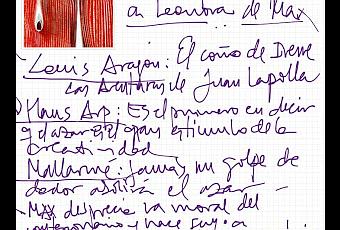 a Leonora de Max
Louis Aragon: El coño de Irene
Las Aventuras de Juan Lapolla
Hans Arp: Es el primero en decir
q el azar es el gran estímulo de la
creatividad
Mallarmé: Jamás un golpe de
dados abolirá el azar -
Max desprecia la moral del
y hace suya